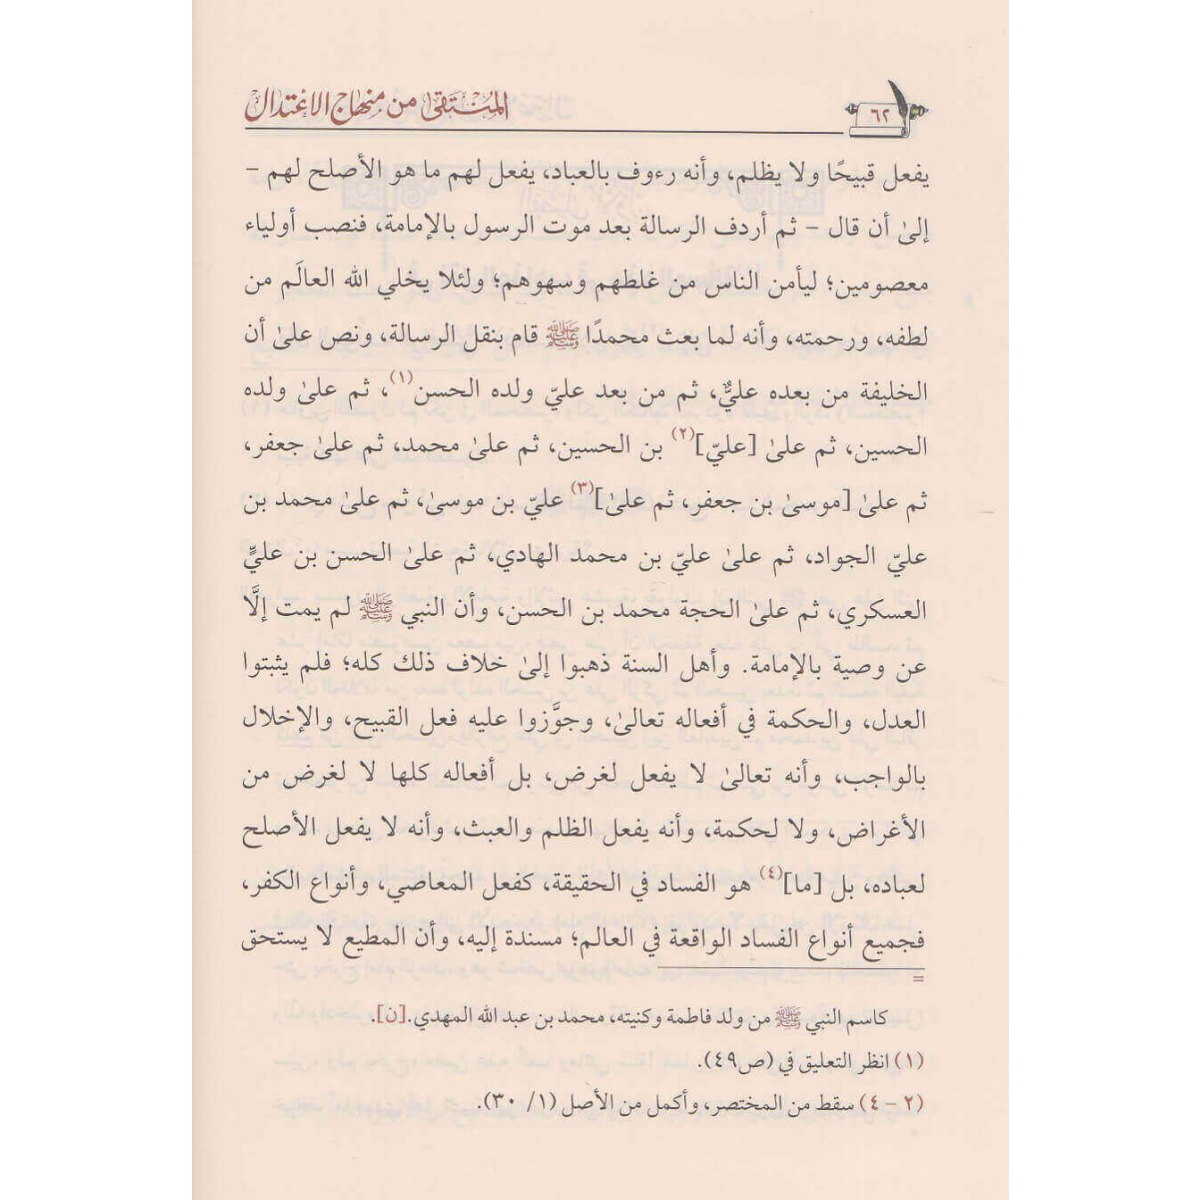 المنتقى من منهاج الاعتدال
٦٢
يفعل قبيحًا ولا يظلم، وأنه رءوف بالعباد، يفعل لهم ما هو الأصلح لهم –
إلىٰ أن قال – ثم أردف الرسالة بعد موت الرسول بالإمامة، فنصب أولياء
معصومين؛ ليأمن الناس من غلطهم وسهوهم؛ ولئلا يخلي الله العالَم من
لطفه، ورحمته، وأنه لما بعث محمدًا ﷺ قام بنقل الرسالة، ونص علىٰ أن
الخليفة من بعده عليٌّ، ثم من بعد عليّ ولده الحسن(١)، ثم علىٰ ولده
الحسين، ثم علىٰ [عليّ](٢) بن الحسين، ثم علىٰ محمد، ثم علىٰ جعفر،
ثم علىٰ [موسىٰ بن جعفر، ثم علىٰ](٣) عليّ بن موسىٰ، ثم علىٰ محمد بن
عليّ الجواد، ثم علىٰ عليّ بن محمد الهادي، ثم علىٰ الحسن بن عليٍّ
العسكري، ثم علىٰ الحجة محمد بن الحسن، وأن النبي ﷺ لم يمت إلَّا
عن وصية بالإمامة. وأهل السنة ذهبوا إلىٰ خلاف ذلك كله؛ فلم يثبتوا
العدل، والحكمة في أفعاله تعالىٰ، وجوَّزوا عليه فعل القبيح، والإخلال
بالواجب، وأنه تعالىٰ لا يفعل لغرض، بل أفعاله كلها لا لغرض من
الأغراض، ولا لحكمة، وأنه يفعل الظلم والعبث، وأنه لا يفعل الأصلح
لعباده، بل [ما](٤) هو الفساد في الحقيقة، كفعل المعاصي، وأنواع الكفر،
فجميع أنواع الفساد الواقعة في العالم؛ مسندة إليه، وأن المطيع لا يستحق
=
كاسم النبي ﷺ من ولد فاطمة وكنيته، محمد بن عبد الله المهدي.[ن].
(١) انظر التعليق في (ص٤٩).
(٢ – ٤) سقط من المختصر، وأكمل من الأصل (١/ ٣٠).